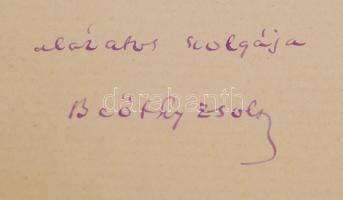 alázatos szolgája
darabanth
Beöthy Zsolt